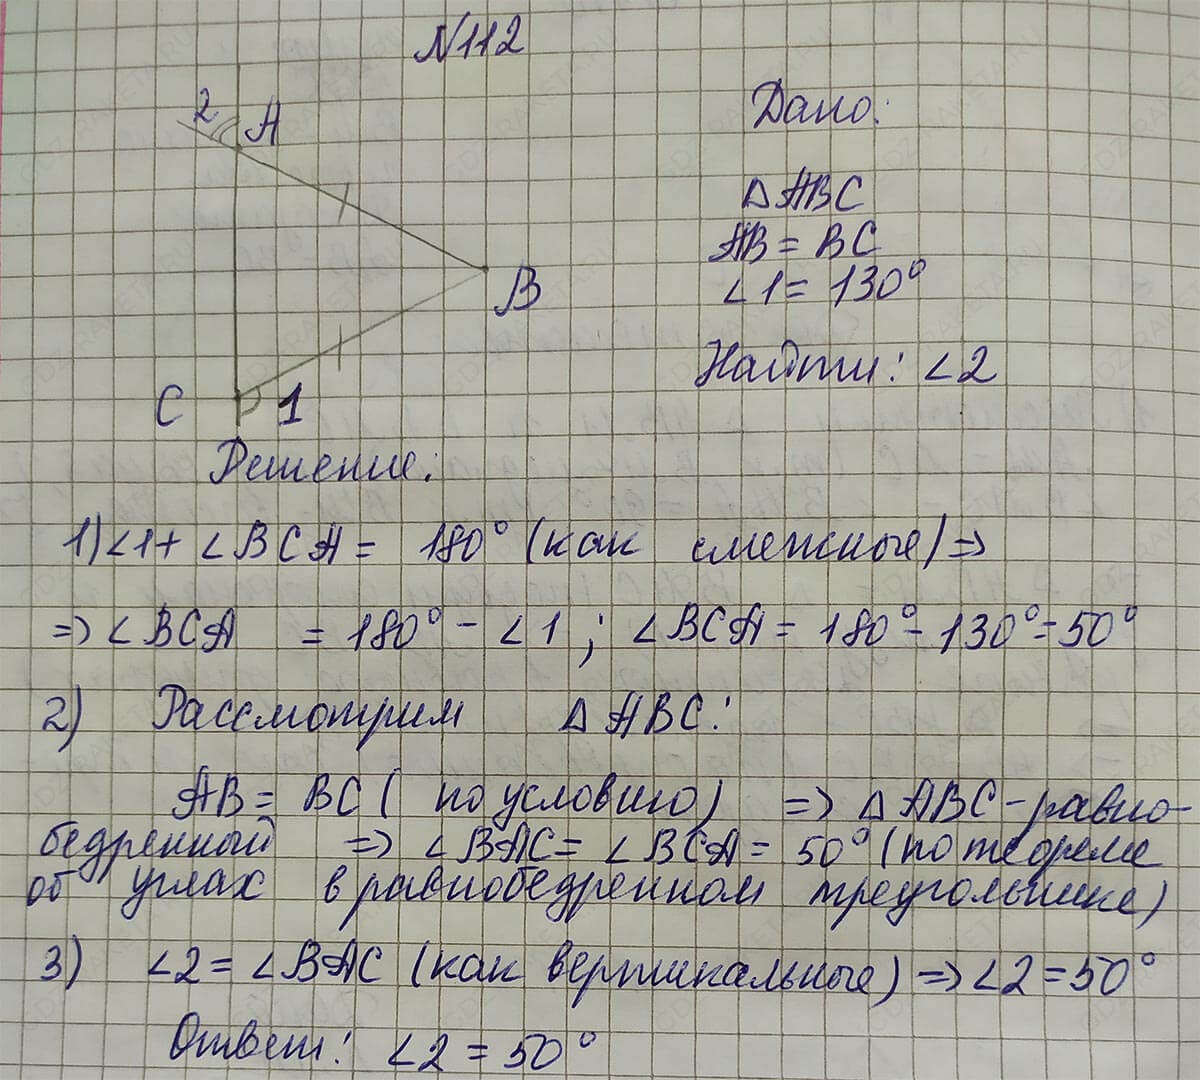 N112
2 A
B
C 1
Дано:
△ ABC
AB = BC
∠1 = 130°
Найти: ∠2
Решение:
1) ∠1 + ∠BCA = 180° (как смежные) =>
=> ∠BCA = 180° - ∠1 ; ∠BCA = 180° - 130° = 50°
2) Рассмотрим △ ABC:
AB = BC ( по условию) => △ ABC - равно-
бедренный => ∠BAC = ∠BCA = 50° (по теореме
об углах в равнобедренном треугольнике)
3) ∠2 = ∠BAC (как вертикальные) => ∠2 = 50°
Ответ: ∠2 = 50°